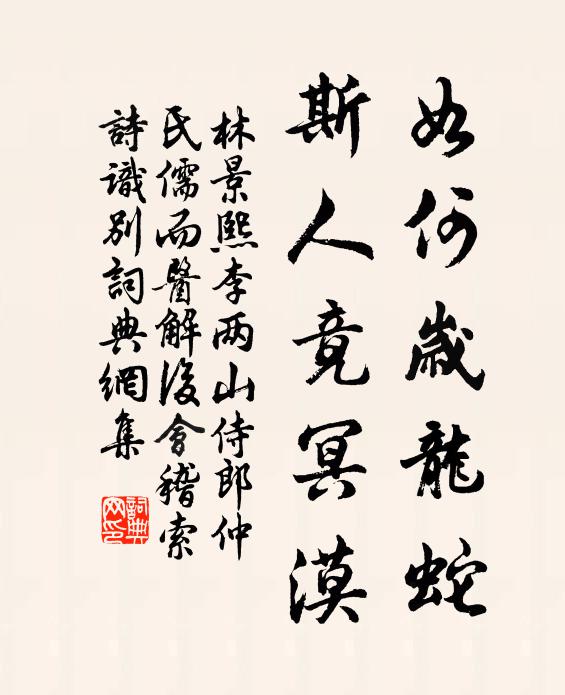 如何歲龍蛇
斯人竟冥漠
林景熙李兩山侍郎仲
民儒而醫解後會稽索
詩識別詞典網集
詞典网印